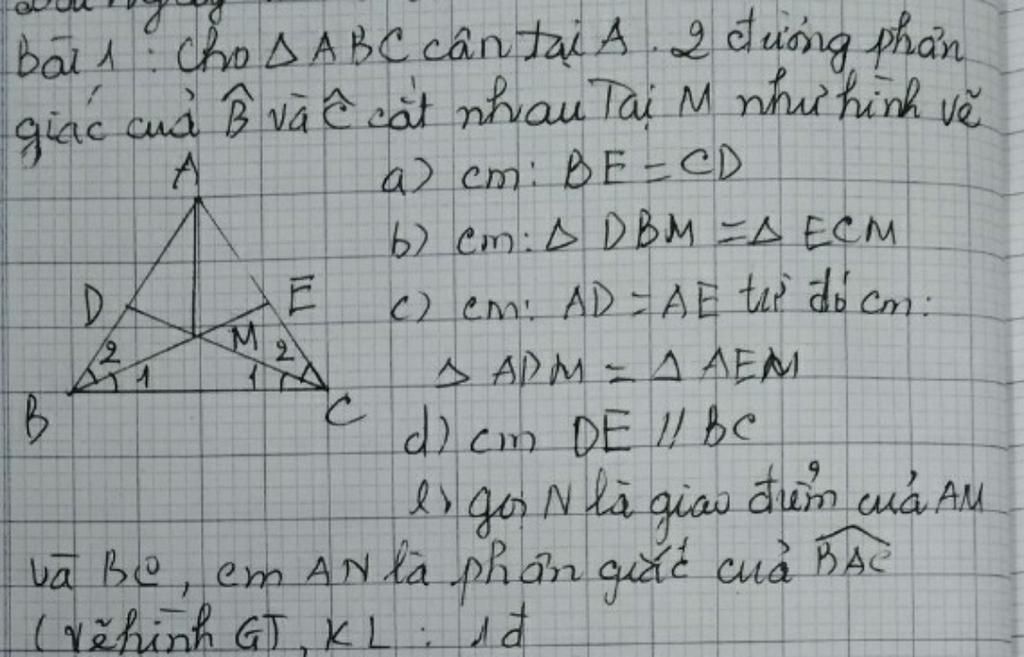 bài 1 : Cho Δ ABC cân tại A. 2 đường phân
giác của B̂ và Ĉ cắt nhau Tại M như hình vẽ
a) cm: BE = CD
b) cm: Δ DBM = Δ ECM
c) cm: AD = AE từ đó cm:
Δ ADM = Δ AEM
d) cm DE // BC
e) gọi N là giao điểm của AM
và BC, cm AN là phân giác của BAC
(vẽ hình GT, KL : 1đ
A
D E
M
2 2
1 1
B C